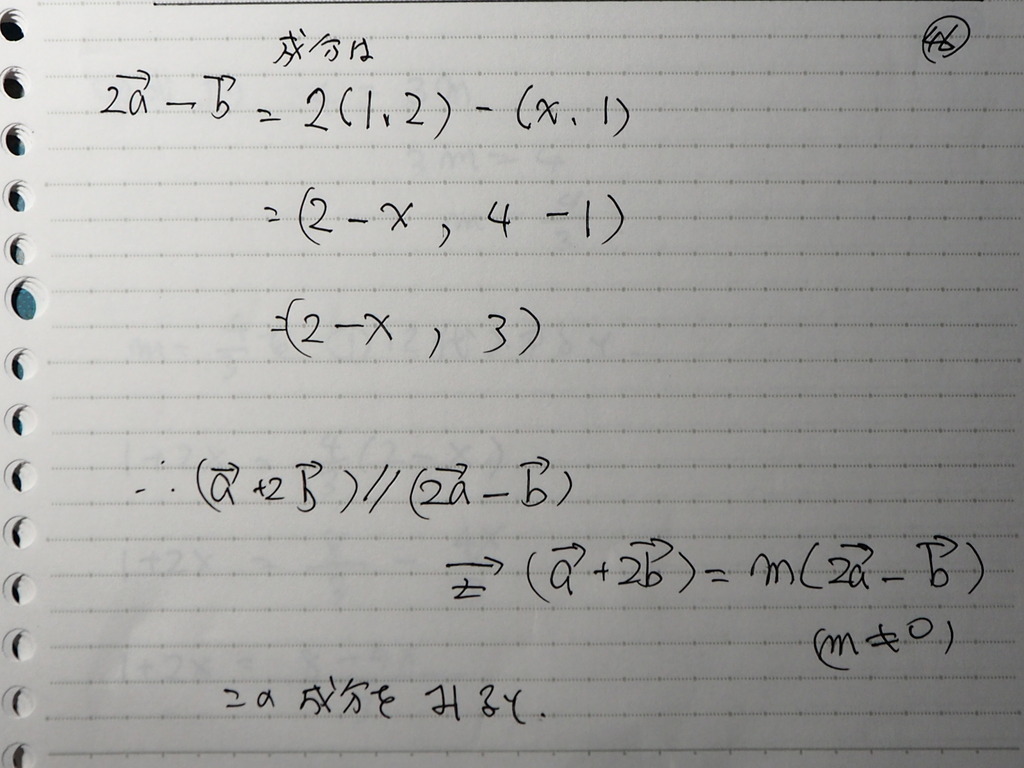 46
成分は
2a⃗ - b⃗ = 2(1, 2) - (x, 1)
= (2 - x, 4 - 1)
= (2 - x, 3)
∴ (a⃗ + 2b⃗) // (2a⃗ - b⃗)
(a⃗ + 2b⃗) = m(2a⃗ - b⃗)
(m ≠ 0)
この成分を